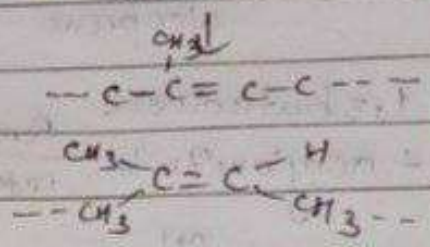 CH3
-- C - C = C - C -- -
CH3 H
C = C
-- CH3 CH3 --